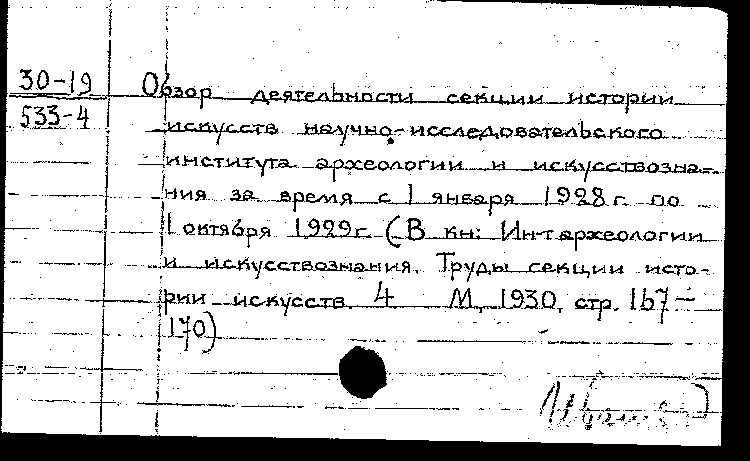 30-19
533-4
Обзор деятельности секции истории
искусств научно-исследовательского
института археологии и искусствозна-
ния за время с 1 января 1928 г. по
1 октября 1929г. (В кн: Ин-т археологии
и искусствознания. Труды секции исто-
рии искусств. 4 М, 1930, стр. 167-
170)